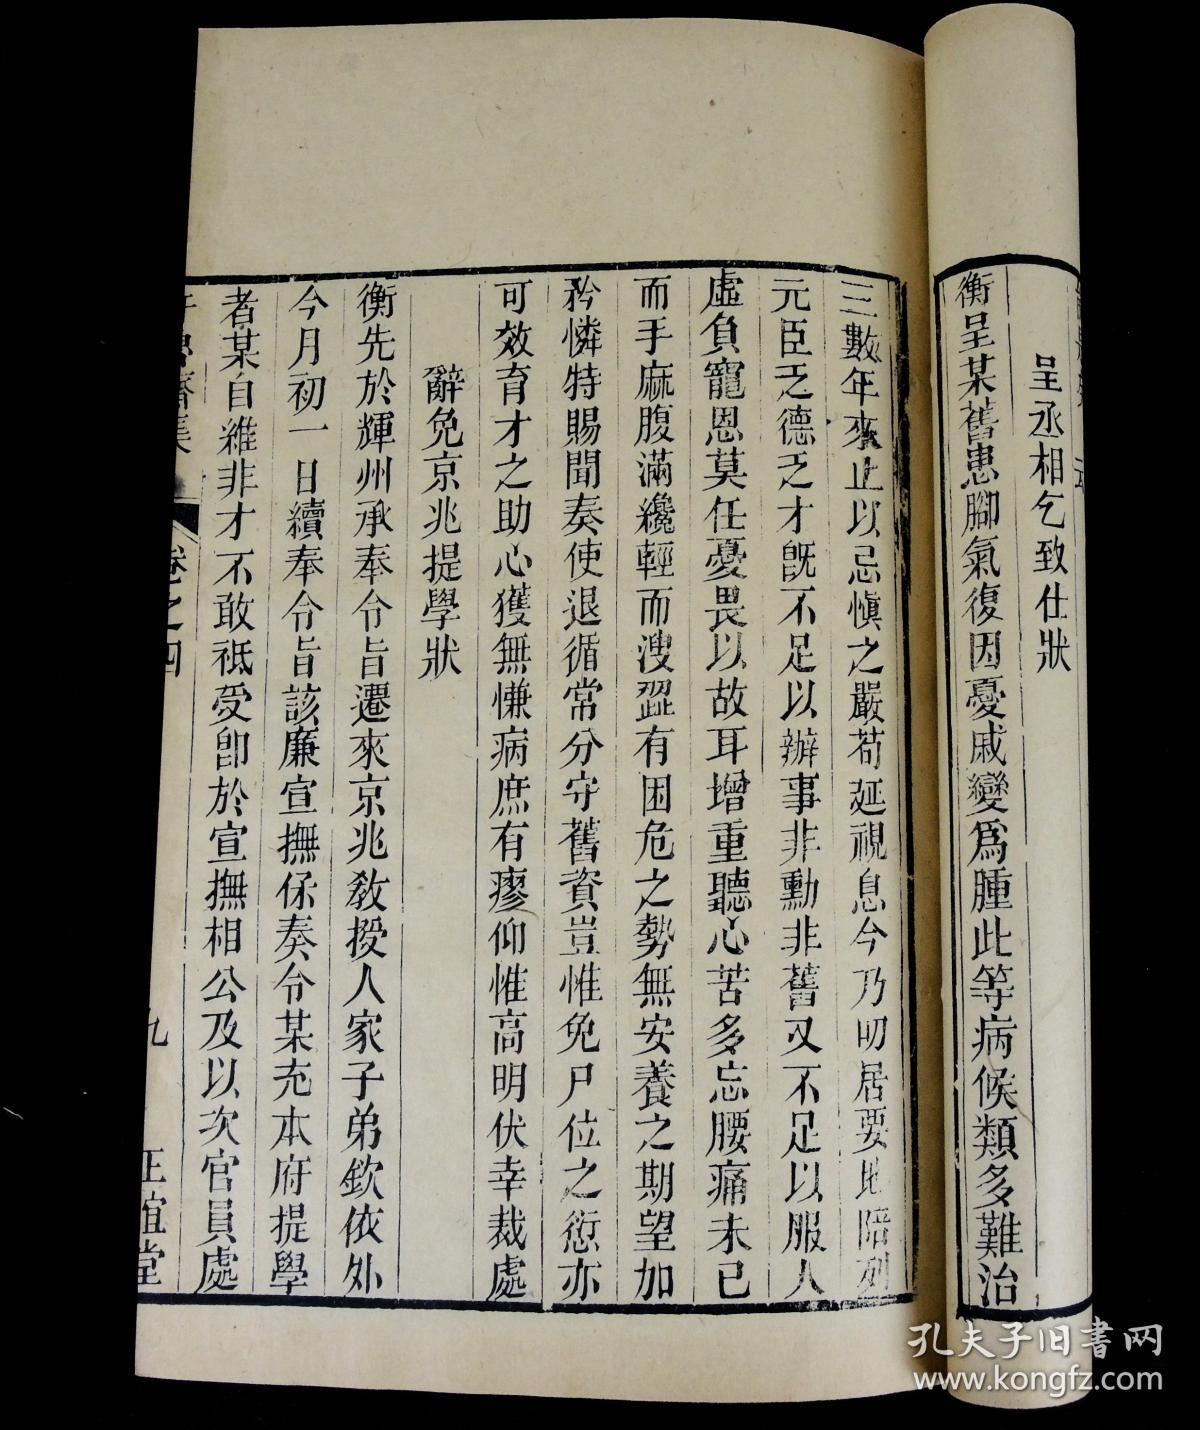 呈丞相乞致仕狀
衡呈某舊患腳氣復因憂戚變爲腫此等病候類多難治
三數年來止以忌慎之嚴苟延視息今乃叨居要地陪列
元臣乏德乏才旣不足以辦事非勳非舊又不足以服人
虛負寵恩莫任憂畏以故耳增重聽心苦多忘腰痛未已
而手麻腹滿纔輕而溲澀有困危之勢無安養之期望加
矜憐特賜聞奏使退循常分守舊資豈惟免尸位之愆亦
可效育才之助心獲無慊病庶有瘳仰惟高明伏幸裁處
辭免京兆提學狀
衡先於輝州承奉令旨遷來京兆敎授人家子弟欽依外
今月初一日續奉令旨該廉宣撫保奏令某充本府提學
者某自維非才不敢祗受卽於宣撫相公及以次官員處
魯齋集 卷之四 九 正誼堂
孔夫子旧書网
www.kongfz.com